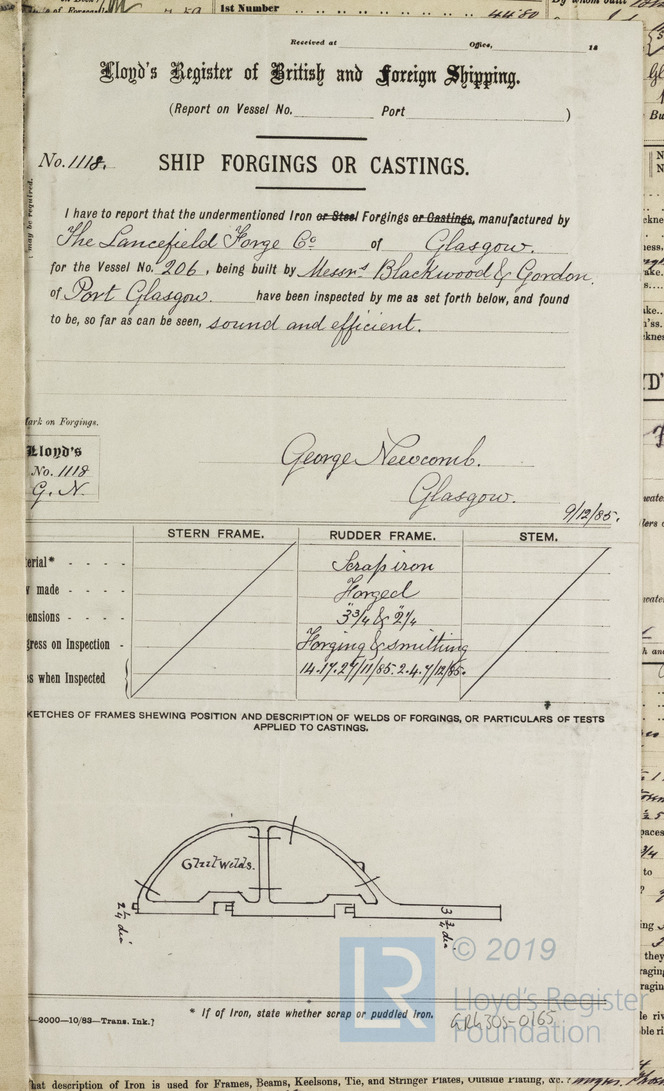 1st Number
4480
By whom built
Received at Office, 18
Lloyd's Register of British and Foreign Shipping.
(Report on Vessel No. Port )
No. 1118. SHIP FORGINGS OR CASTINGS.
may be required.
I have to report that the undermentioned Iron or Steel Forgings or Castings, manufactured by
The Lancefield Forge Co of Glasgow.
for the Vessel No. 206, being built by Messrs Blackwood & Gordon.
of Port Glasgow. have been inspected by me as set forth below, and found
to be, so far as can be seen, sound and efficient.
Mark on Forgings.
Lloyd's
No. 1118
G. N.
George Newcomb.
Glasgow.
9/12/85.
STERN FRAME. RUDDER FRAME. STEM.
erial* - - - - Scrap iron
made - - - - Forged
ensions - - - - 3 3/4" & 2 1/4"
gress on Inspection - Forging & smithing
s when Inspected 14.17.27/11/85. 2.4.7/12/85.
KETCHES OF FRAMES SHEWING POSITION AND DESCRIPTION OF WELDS OF FORGINGS, OR PARTICULARS OF TESTS
APPLIED TO CASTINGS.
Welds.
2 1/4 dia
3 3/4 dia
© 2019
LR
Lloyd's Register
Foundation
* If of Iron, state whether scrap or puddled iron.
—2000—10/83—Trans. Ink.]
GRG305-0165
hat description of Iron is used for Frames, Beams, Keelsons, Tie, and Stringer Plates, Outside Plating, &c.